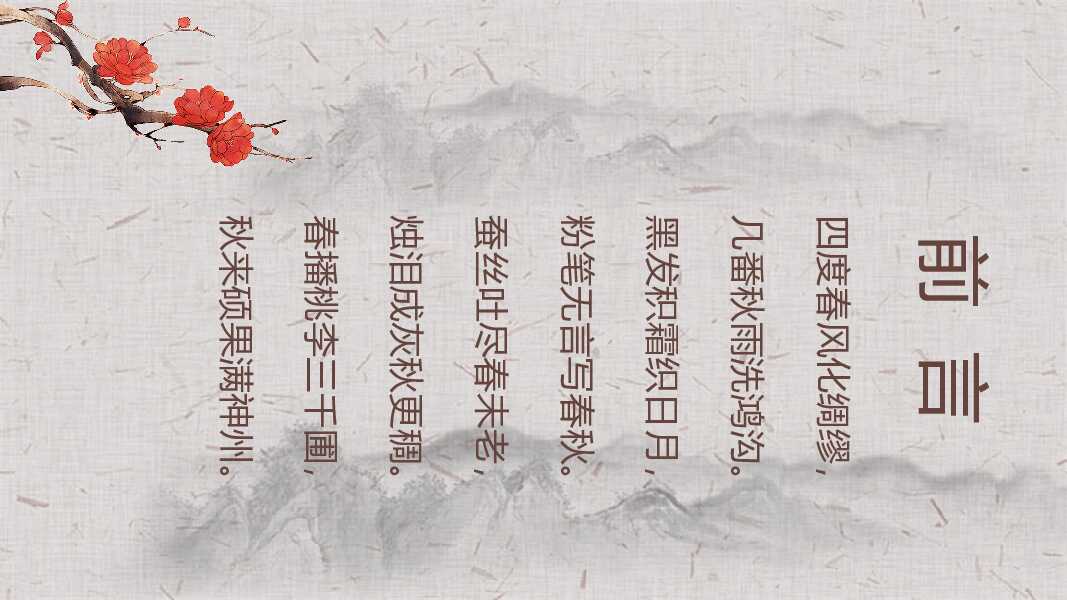 前言
四度春风化绸缪，
几番秋雨洗鸿沟。
黑发积霜织日月，
粉笔无言写春秋。
蚕丝吐尽春未老，
烛泪成灰秋更稠。
春播桃李三千圃，
秋来硕果满神州。